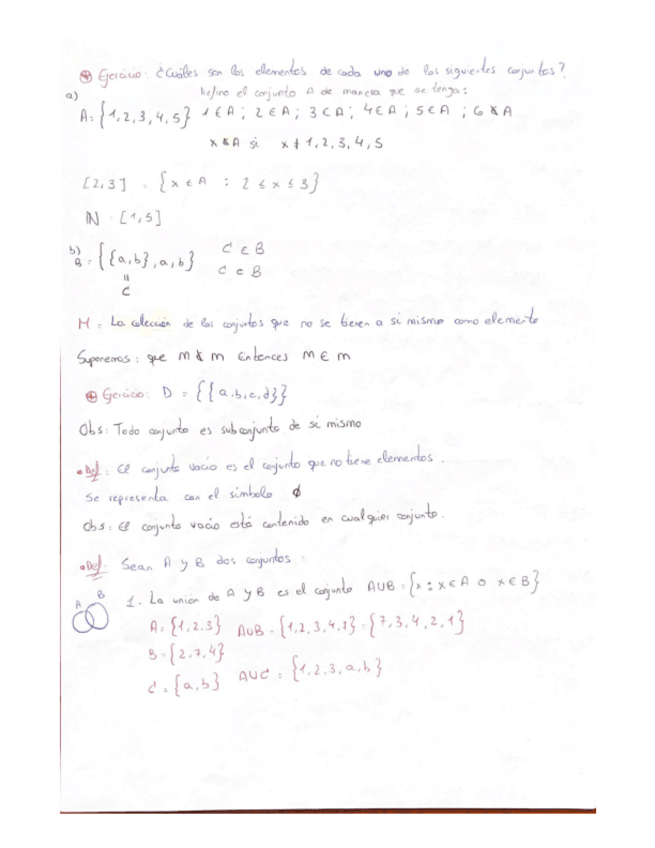 ⊛ Ejercicio: ¿Cuáles son los elementos de cada uno de los siguientes conjuntos?
Defino el conjunto A de manera que se tenga:
a)
A = {1, 2, 3, 4, 5} 1 ∈ A ; 2 ∈ A ; 3 ∈ A ; 4 ∈ A ; 5 ∈ A ; 6 ∉ A
x ∉ A si x ≠ 1, 2, 3, 4, 5
[2,3] = {x ∈ A : 2 ≤ x ≤ 3}
ℕ [1,5]
b)
B = {{a,b}, a, b} C ∈ B
C ⊂ B
=
C
M = La colección de los conjuntos que no se tienen a si mismo como elemento
Suponemos: que M ∉ M Entonces M ∈ M
⊛ Ejercicio: D = {{a,b,c,d}}
Obs: Todo conjunto es subconjunto de si mismo
• Def: El conjunto vacio es el conjunto que no tiene elementos.
Se representa con el simbolo ∅
Obs: El conjunto vacio está contenido en cualquier conjunto.
• Def: Sean A y B dos conjuntos:
A B
1. La unión de A y B es el conjunto A∪B = {x : x ∈ A o x ∈ B}
A = {1, 2, 3} A∪B = {1, 2, 3, 4, 7} = {7, 3, 4, 2, 1}
B = {2, 7, 4}
C = {a, b} A∪C = {1, 2, 3, a, b}